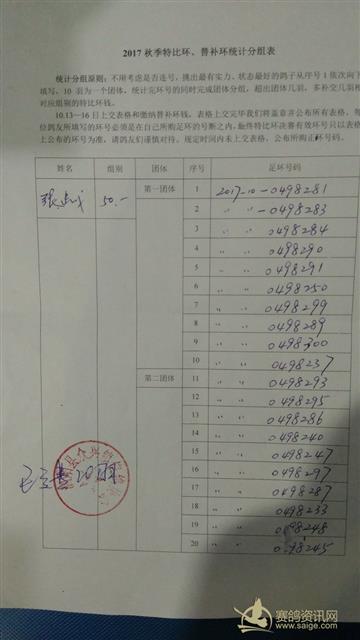 2017 秋季特比环、替补环统计分组表
统计分组原则：不用考虑是否连号，挑出最有实力、状态最好的鸽子从序号 1 依次向下
填写，10 羽为一个团体，统计完环号的同时完成团体分组，超出团体几羽，多补交几羽相
对应组别的特比环钱。
10.13—16 日上交表格和缴纳替补环钱。表格上交完毕我们将盖章并公布所有表格，每
位鸽友所填写的环号必须是在自己所购足环的号断之内，最终特比环决赛有效环号只以表格
上公布的环号为准，请鸽友们谨慎对待。规定时间内未上交表格，公布所购正环号码。
姓名 组别 团体 序号 足环号码
张 50.- 第一团体 1 2017-10-0498281
2 〃 〃 -0498283
3 〃 〃 0498284
4 〃 〃 0498290
5 〃 〃 0498291
6 〃 〃 0498250
7 〃 〃 0498299
8 〃 〃 0498289
9 〃 〃 0498300
10 〃 〃 0498237
第二团体 11 〃 〃 0498293
12 〃 〃 0498295
13 〃 〃 0498286
14 〃 〃 0498240
15 〃 〃 0498247
16 〃 〃 0498297
17 〃 〃 0498287
18 〃 〃 0498233
19 〃 〃 0498248
20 〃 〃 0498245
赛鸽资讯网
www.saige.com